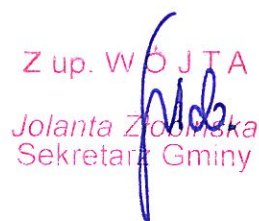 Z up. WÓJTA
Jolanta Złobińska
Sekretarz Gminy